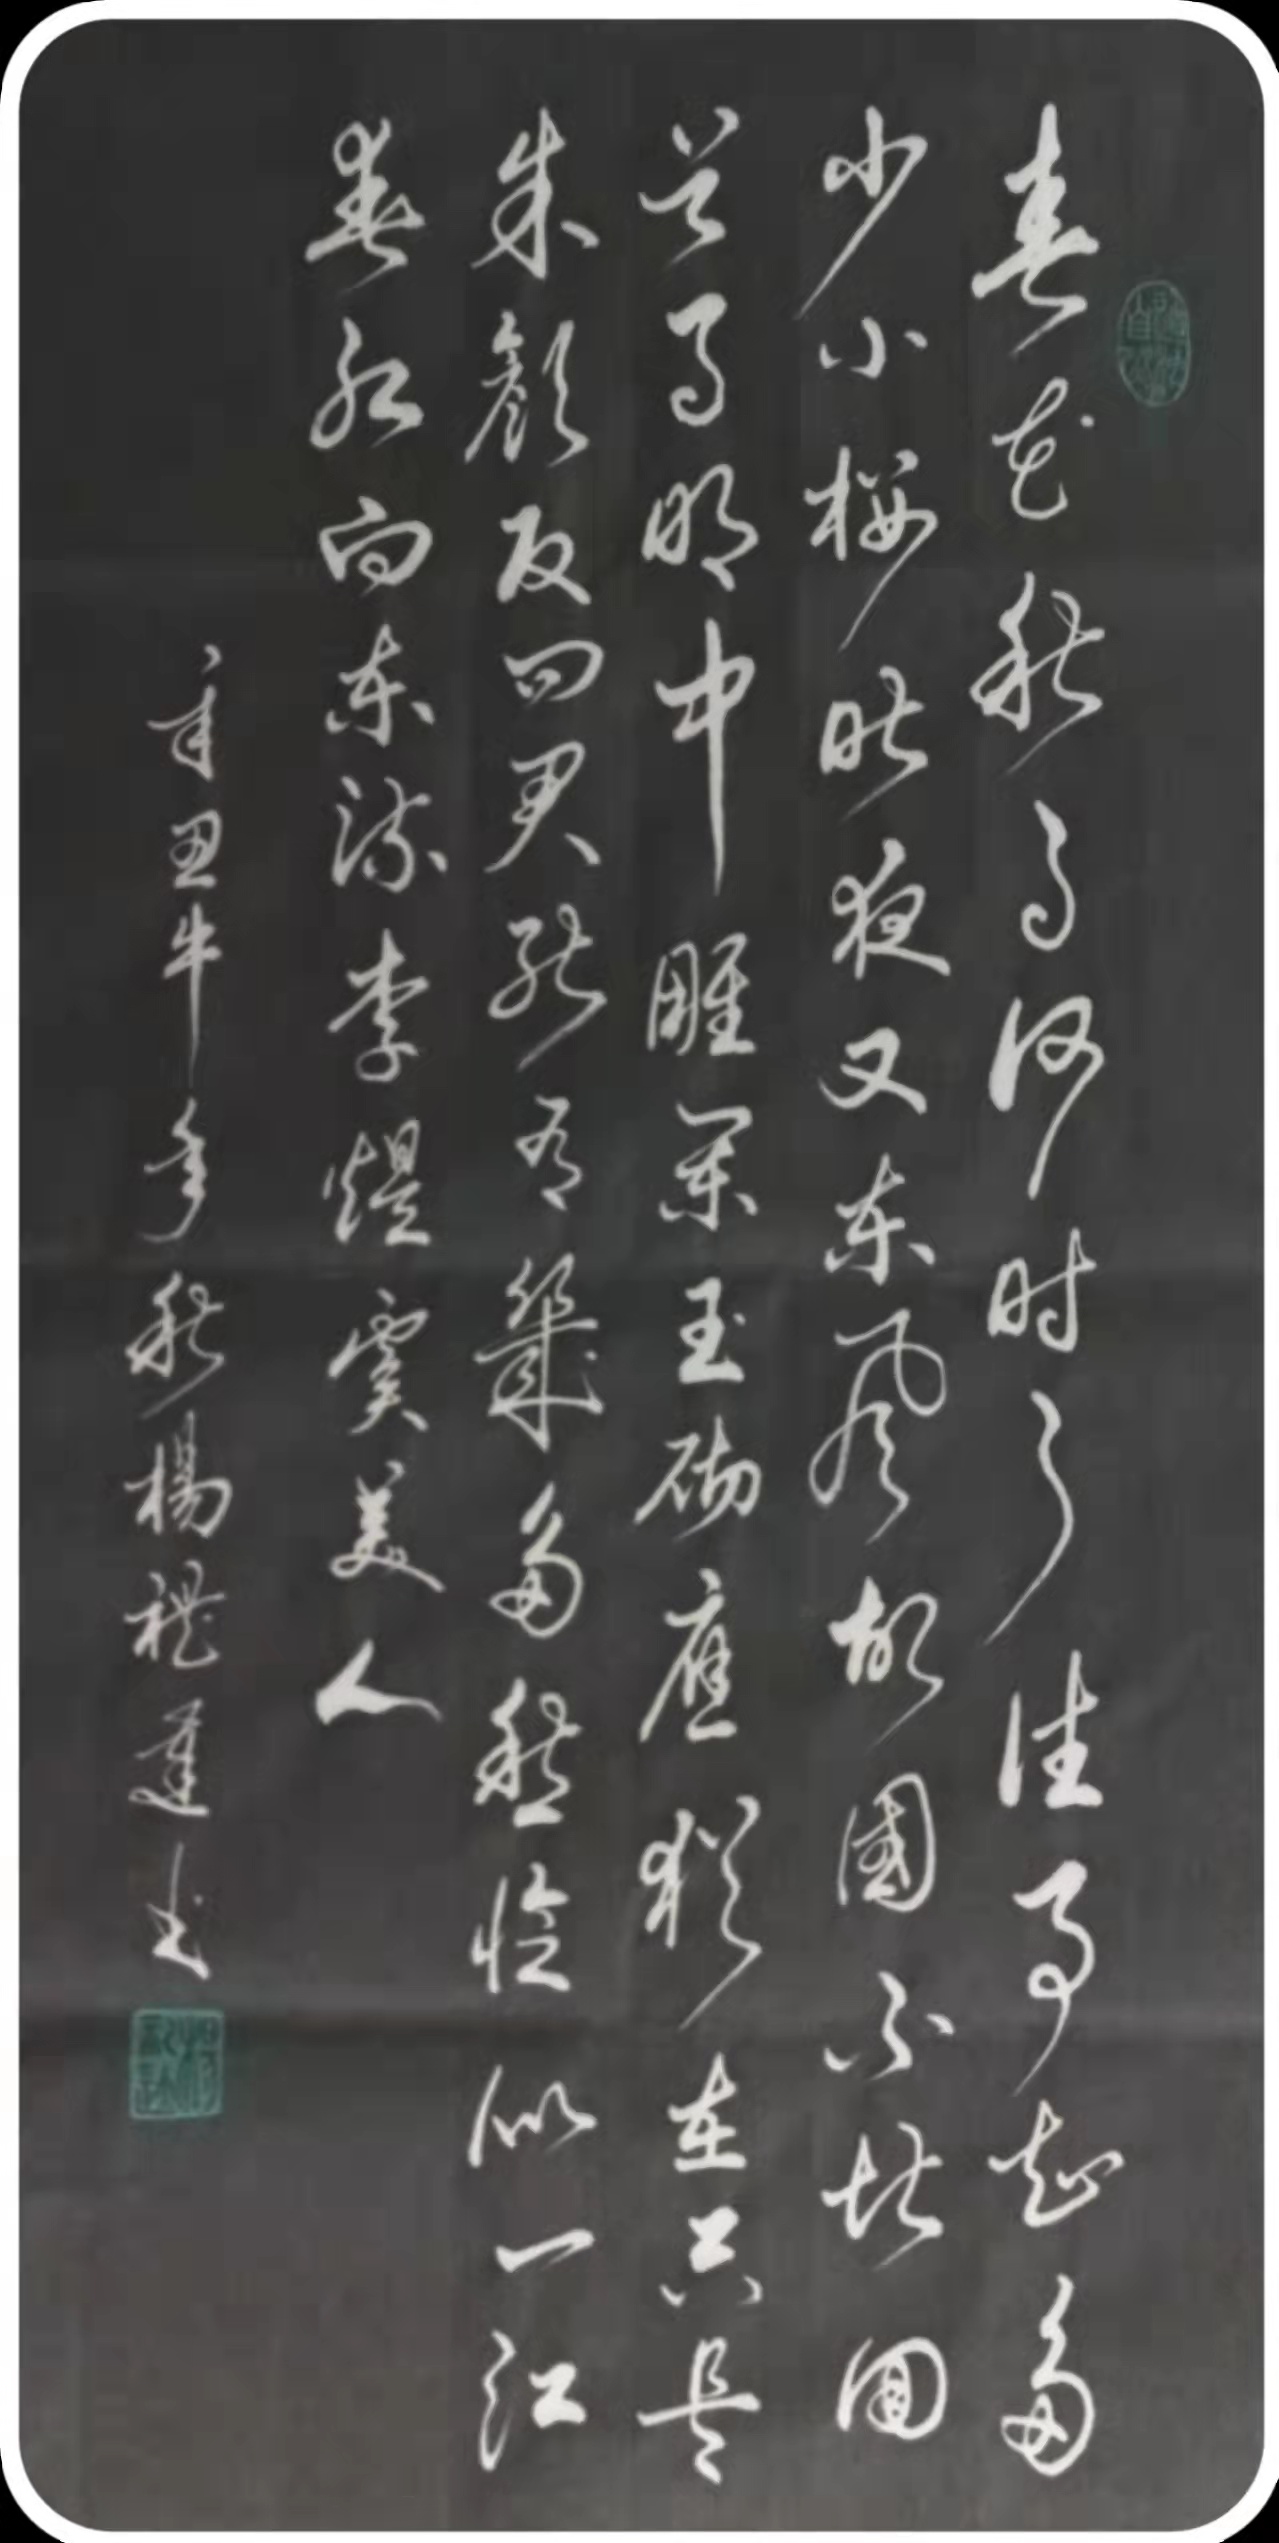 春花秋月何时了往事知多
少小楼昨夜又东风故國不堪回
首月明中雕阑玉砌應猶在只是
朱颜改问君能有幾多愁恰似一江
春水向东流李煜虞美人
辛丑牛年秋楊礼達书